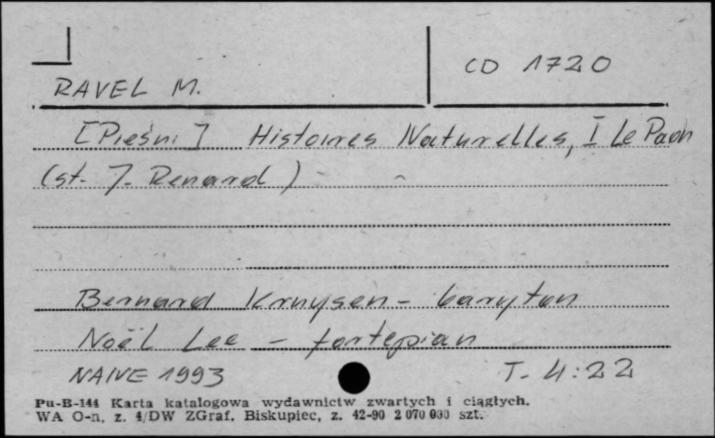 RAVEL M.
CD 1720
[Pieśni] Histoires Naturelles, I Le Paon
(sł. J. Renard)
Bernard Kruysen - baryton
Noël Lee - fortepian
NAIVE 1993
T. 4:22
Pu-B-144 Karta katalogowa wydawnictw zwartych i ciągłych.
WA O-n, z. 4/DW ZGraf. Biskupiec, z. 42-90 2 070 000 szt.